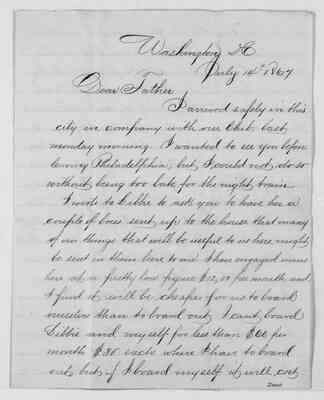 Washington DC
July 14th 1867
Dear Father
I arrived safely in this
city in company with our Club last
monday morning. I wanted to see you before
leaving Philadelphia, but I could not do so
without being too late for the night train.
I wrote to Lillie to ask you to have her a
couple of boxes sent up to the house that many
of our things that will be useful to us here might
be sent in them here to me I have engaged rooms
here at a pretty low figure $12,00 per month and
I find it will be cheaper for us to board
ourselves than to board out, I cant board
Lillie and myself for less than $60 per
month $30 each where I have to board
out, but if I board myself it will cost